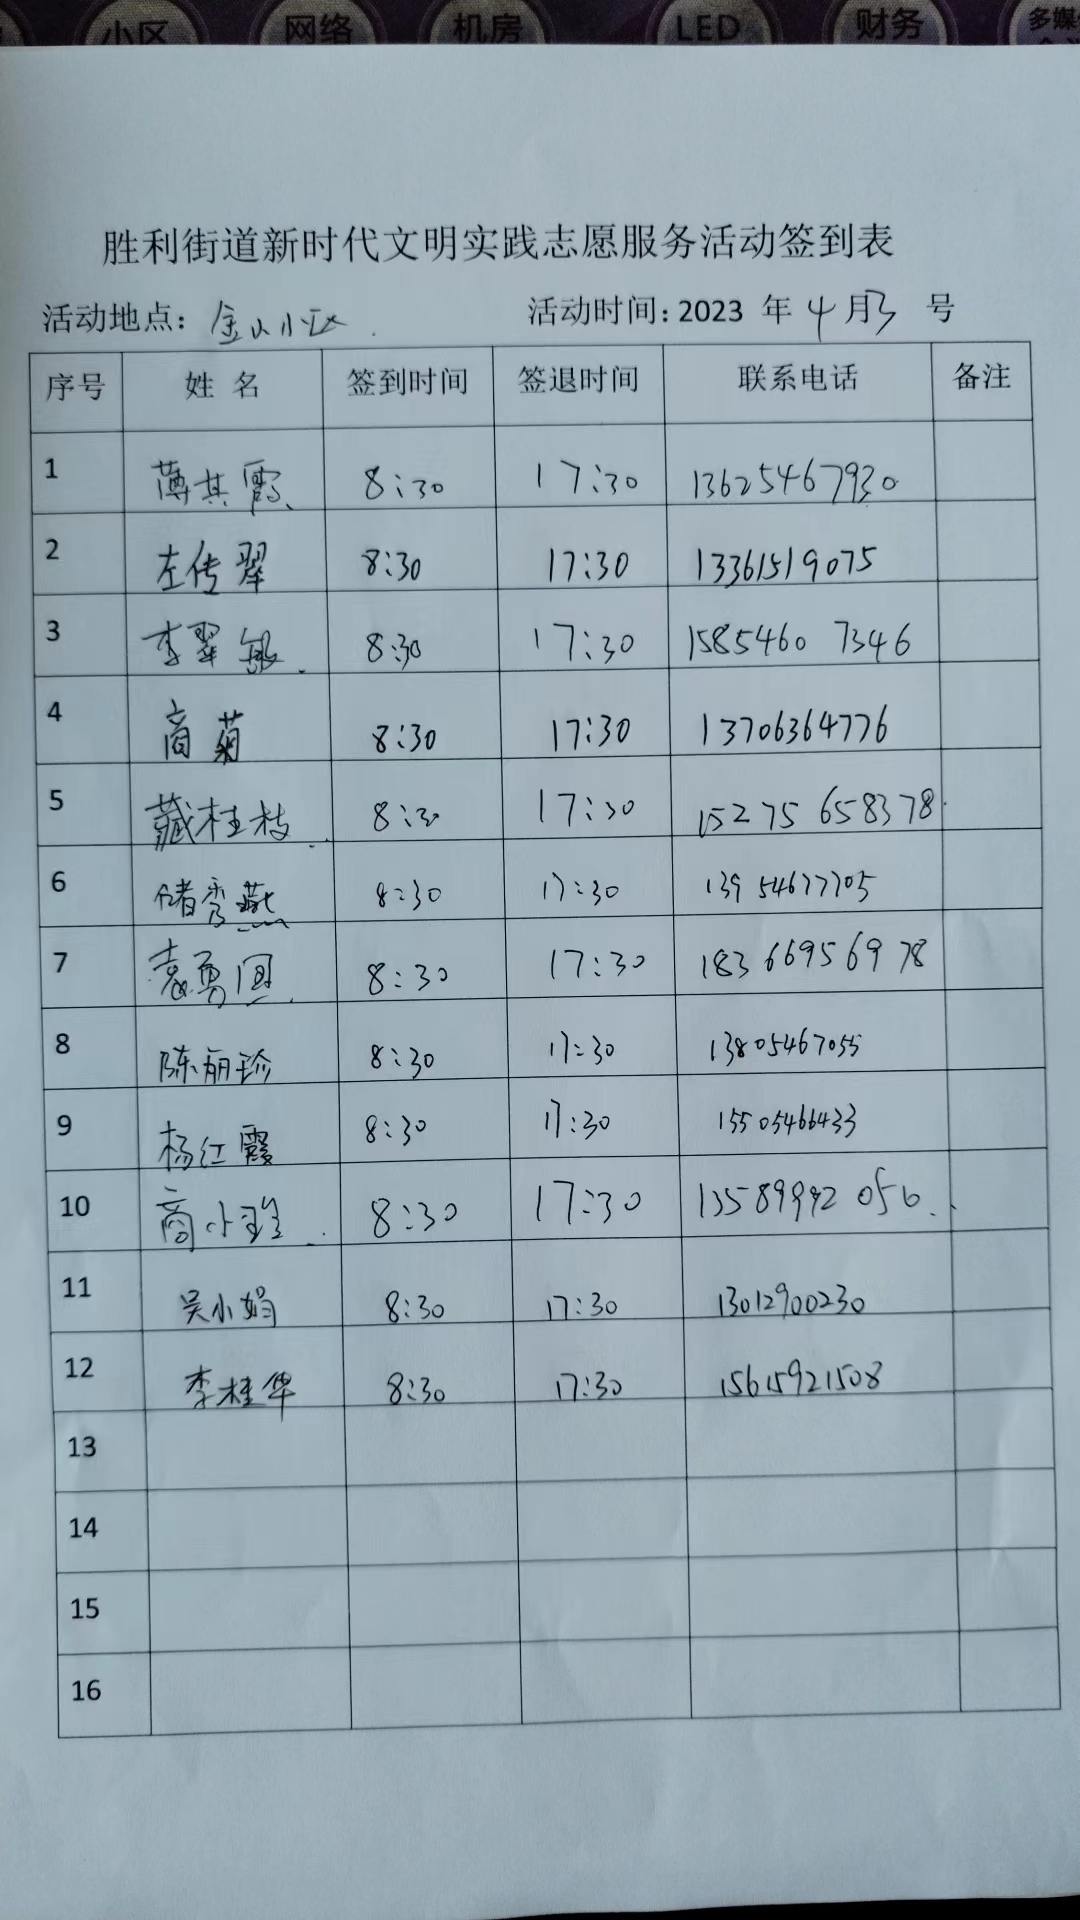 小区 网络 机房 LED 财务 多媒
胜利街道新时代文明实践志愿服务活动签到表
活动地点: 金山小区 活动时间: 2023 年 4 月 3 号
序号 姓 名 签到时间 签退时间 联系电话 备注
1 薄其霞 8:30 17:30 13625467930
2 左传翠 8:30 17:30 13361519075
3 李翠敏 8:30 17:30 1585460 7346
4 商菊 8:30 17:30 13706364776
5 藏桂枝 8:30 17:30 15275 658378
6 褚秀燕 8:30 17:30 139 54677705
7 袁勇 8:30 17:30 183 669569 78
8 陈丽珍 8:30 17:30 13805467055
9 杨红霞 8:30 17:30 15505466433
10 商小 8:30 17:30 056
11 吴小娟 8:30 17:30 13012900230
12 李桂华 8:30 17:30 15615921508
13
14
15
16